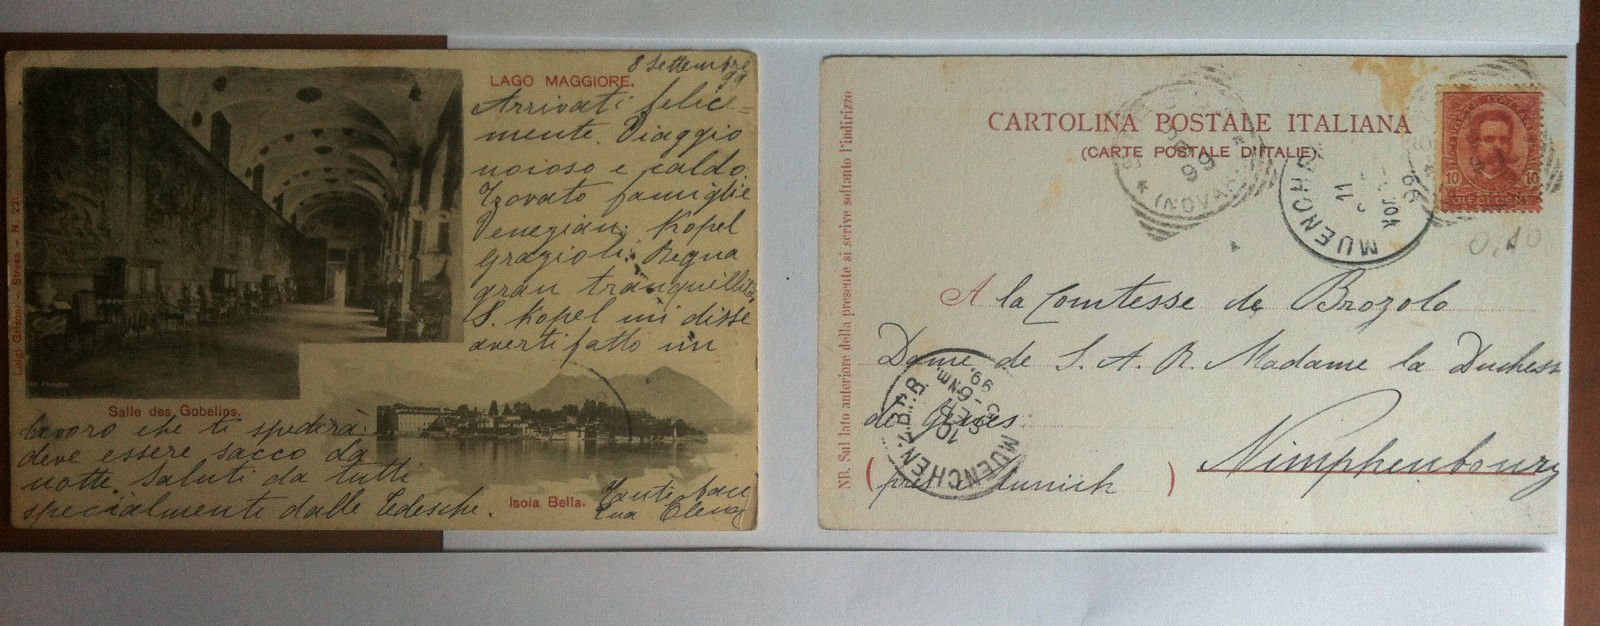 LAGO MAGGIORE.
8 Settembre
99
Arrivati felice=
mente. Viaggio
noioso e caldo.
Trovato famiglie
Venezian: Kopel
Grazioli. Regna
gran tranquillità
S. Kopel mi disse
averti fatto un
lavoro che ti spedirà
deve essere sacco da
notte. Saluti da tutti
specialmente dalle Tedesche.
Tanti baci
tua Elena
Salle des Gobelins.
Isola Bella.
Luigi Grisoni - Stresa - N. 221
CARTOLINA POSTALE ITALIANA
(CARTE POSTALE D'ITALIE).
NB. Sul lato anteriore della presente si scrive soltanto l'indirizzo
(NOVARA)
99
MUENCHEN
11
99
POSTE ITALIANE
10 10
DIECI CENT
0,10
A la Comtesse de Brozolo
Dame de S. A. R. Madame la Duchess
de Gênes
Nimphenbourg
(près Munich)
MUENCHEN 2. B.P. B.
10 SEP.
5-6 Nm.
99